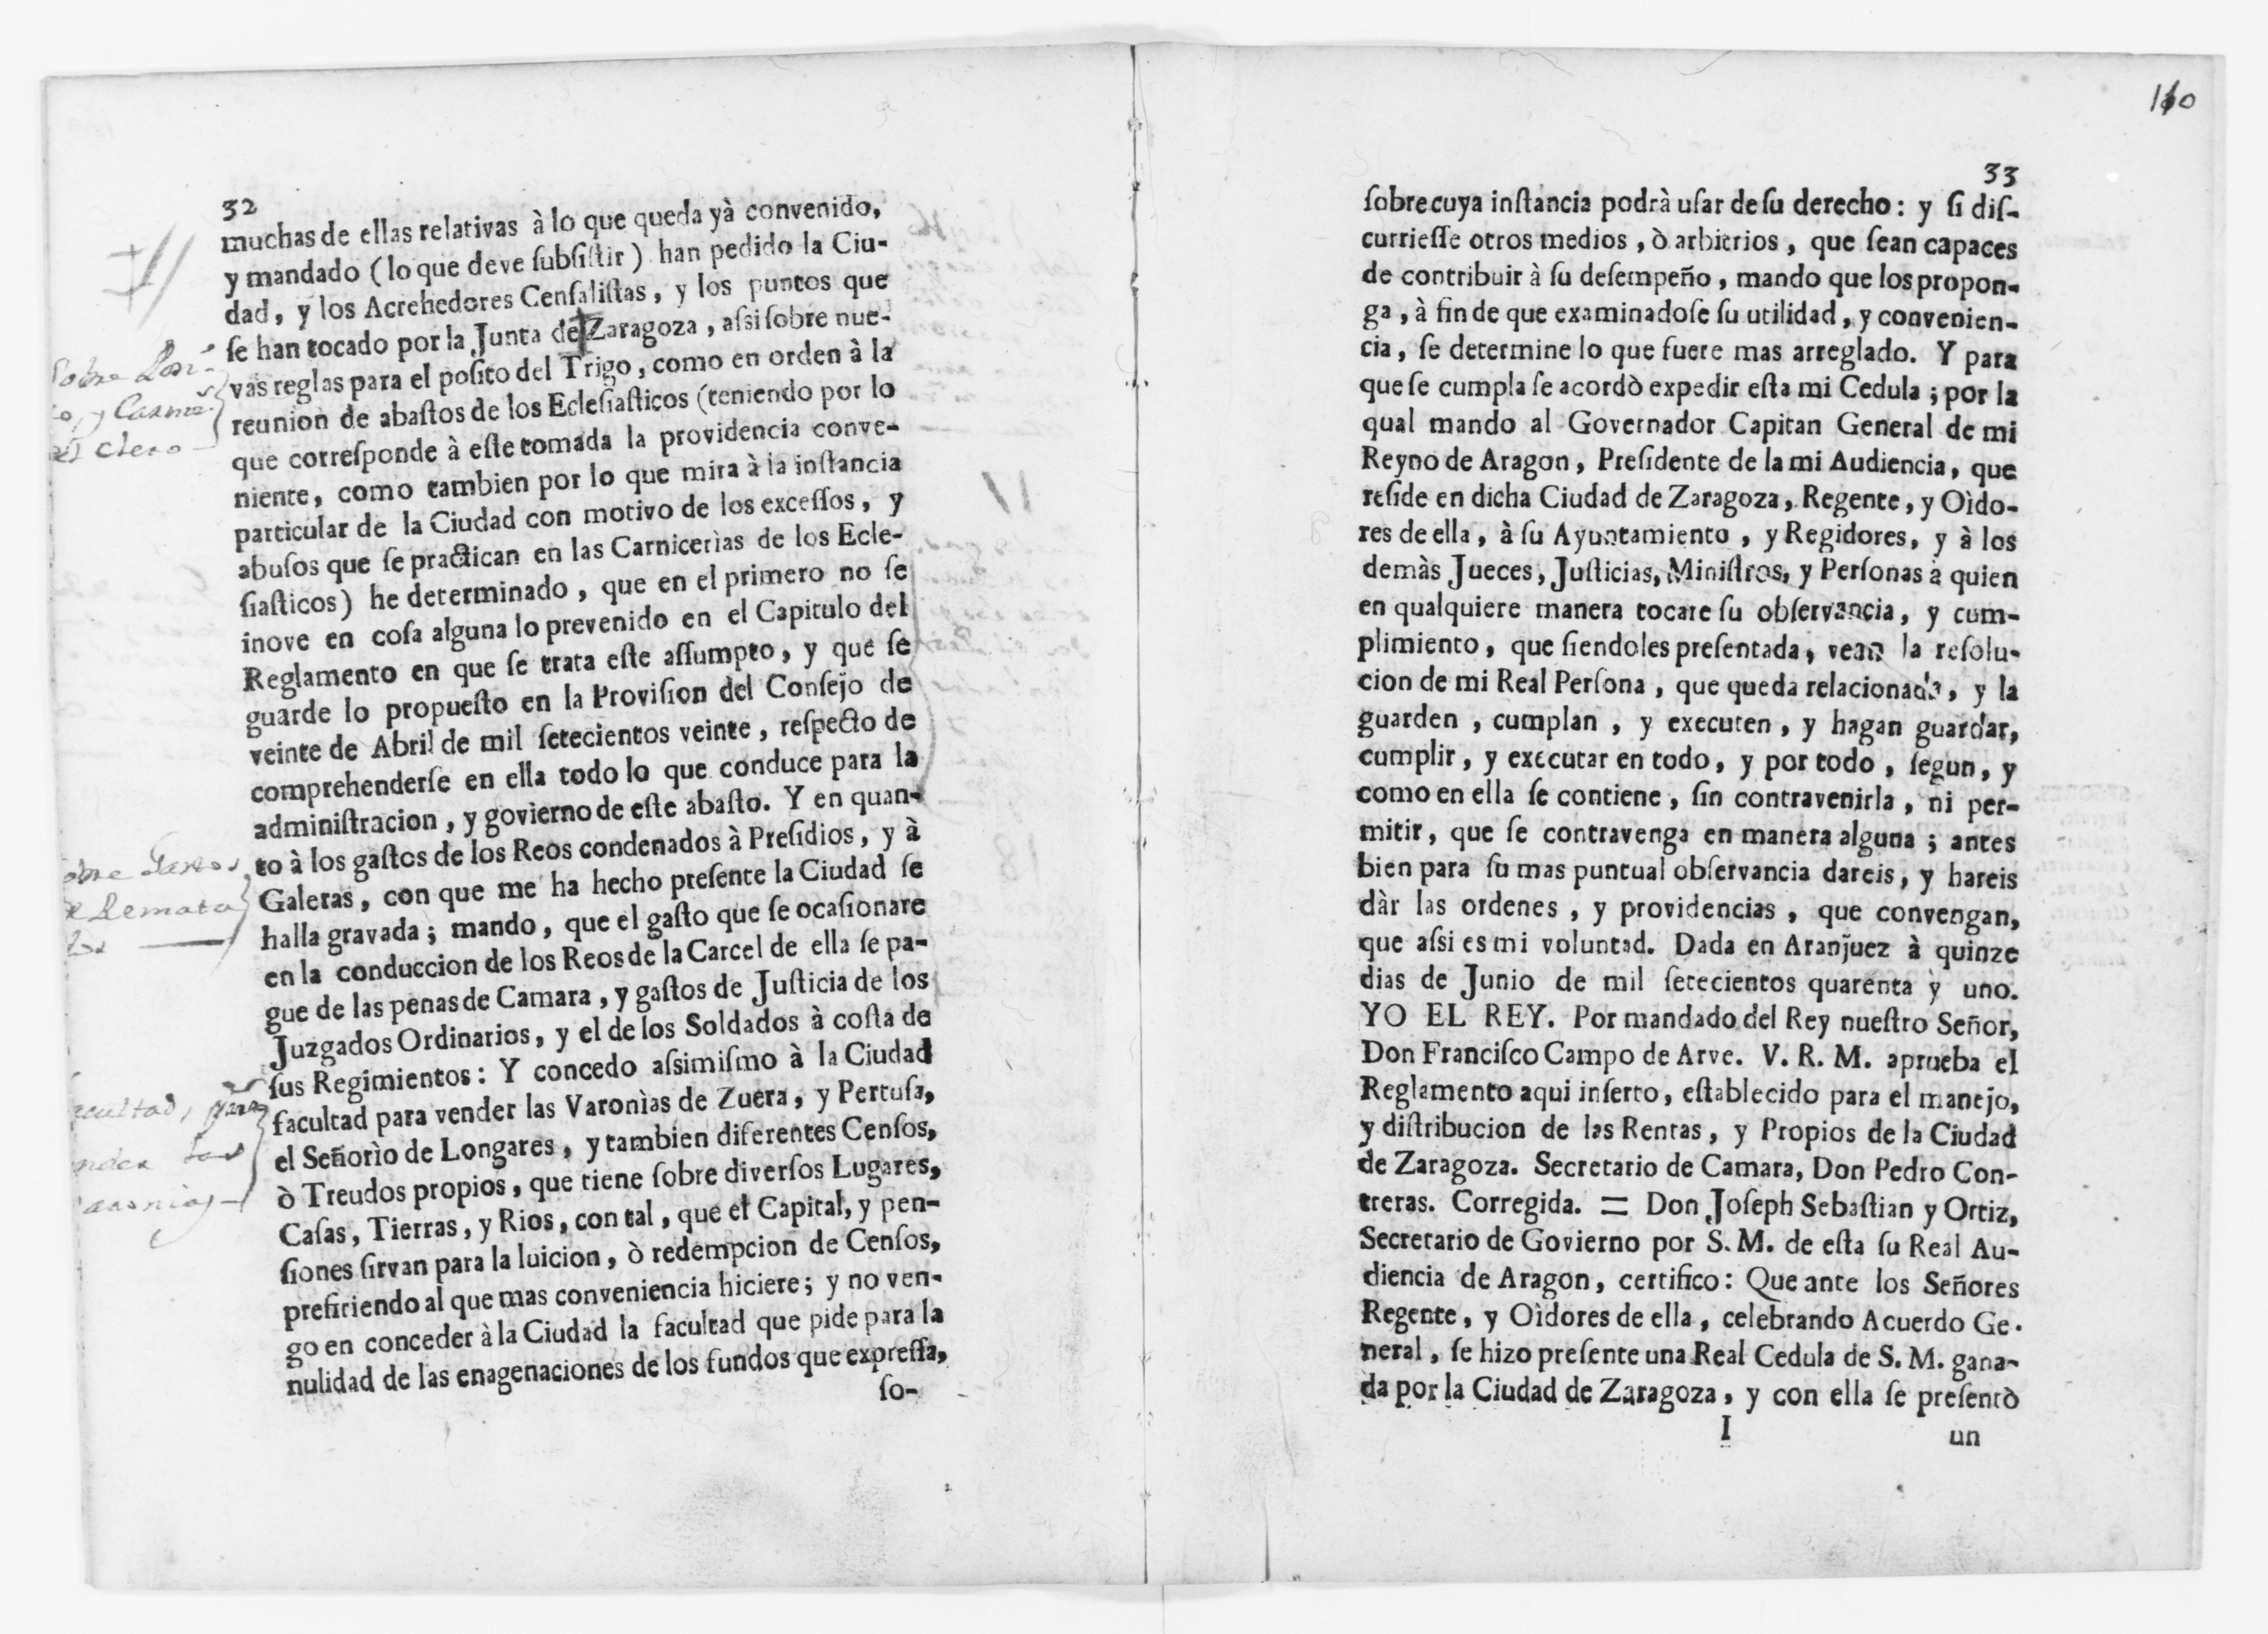 32
muchas de ellas relativas à lo que queda yà convenido,
y mandado (lo que deve ſubſiſtir) han pedido la Ciu-
dad, y los Acrehedores Cenſaliſtas, y los puntos que
ſe han tocado por la Junta de Zaragoza, aſsi ſobre nue-
vas reglas para el poſito del Trigo, como en orden à la
reunion de abaſtos de los Ecleſiaſticos (teniendo por lo
que correſponde à eſte tomada la providencia conve-
niente, como tambien por lo que mira à la inſtancia
particular de la Ciudad con motivo de los exceſſos, y
abuſos que ſe practican en las Carnicerìas de los Ecle-
ſiaſticos) he determinado, que en el primero no ſe
inove en coſa alguna lo prevenido en el Capitulo del
Reglamento en que ſe trata eſte aſſumpto, y que ſe
guarde lo propueſto en la Proviſion del Conſejo de
veinte de Abril de mil ſetecientos veinte, reſpecto de
comprehenderſe en ella todo lo que conduce para la
adminiſtracion, y govierno de eſte abaſto. Y en quan-
to à los gaſtos de los Reos condenados à Preſidios, y à
Galeras, con que me ha hecho preſente la Ciudad ſe
halla gravada; mando, que el gaſto que ſe ocaſionare
en la conduccion de los Reos de la Carcel de ella ſe pa-
gue de las penas de Camara, y gaſtos de Juſticia de los
Juzgados Ordinarios, y el de los Soldados à coſta de
ſus Regimientos: Y concedo aſsimiſmo à la Ciudad
facultad para vender las Varonìas de Zuera, y Pertuſa,
el Señorìo de Longares, y tambien diferentes Cenſos,
ò Treudos propios, que tiene ſobre diverſos Lugares,
Caſas, Tierras, y Rios, con tal, que el Capital, y pen-
ſiones ſirvan para la luicion, ò redempcion de Cenſos,
prefiriendo al que mas conveniencia hiciere; y no ven-
go en conceder à la Ciudad la facultad que pide para la
nulidad de las enagenaciones de los fundos que expreſſa,
ſo-
Sobre
y
Clero
Gastos
Remata
160
33
ſobre cuya inſtancia podrà uſar de ſu derecho: y ſi diſ-
currieſſe otros medios, ò arbitrios, que ſean capaces
de contribuir à ſu deſempeño, mando que los propon-
ga, à fin de que examinadoſe ſu utilidad, y convenien-
cia, ſe determine lo que fuere mas arreglado. Y para
que ſe cumpla ſe acordò expedir eſta mi Cedula; por la
qual mando al Governador Capitan General de mi
Reyno de Aragon, Preſidente de la mi Audiencia, que
reſide en dicha Ciudad de Zaragoza, Regente, y Oìdo-
res de ella, à ſu Ayuntamiento, y Regidores, y à los
demàs Jueces, Juſticias, Miniſtros, y Perſonas à quien
en qualquiere manera tocare ſu obſervancia, y cum-
plimiento, que ſiendoles preſentada, vean la reſolu-
cion de mi Real Perſona, que queda relacionada, y la
guarden, cumplan, y executen, y hagan guardar,
cumplir, y executar en todo, y por todo, ſegun, y
como en ella ſe contiene, ſin contravenirla, ni per-
mitir, que ſe contravenga en manera alguna; antes
bien para ſu mas puntual obſervancia dareis, y hareis
dàr las ordenes, y providencias, que convengan,
que aſsi es mi voluntad. Dada en Aranjuez à quinze
dias de Junio de mil ſetecientos quarenta y uno.
YO EL REY. Por mandado del Rey nueſtro Señor,
Don Franciſco Campo de Arve. V. R. M. aprueba el
Reglamento aqui inſerto, eſtablecido para el manejo,
y diſtribucion de las Rentas, y Propios de la Ciudad
de Zaragoza. Secretario de Camara, Don Pedro Con-
treras. Corregida. = Don Joſeph Sebaſtian y Ortiz,
Secretario de Govierno por S. M. de eſta ſu Real Au-
diencia de Aragon, certifico: Que ante los Señores
Regente, y Oìdores de ella, celebrando Acuerdo Ge-
neral, ſe hizo preſente una Real Cedula de S. M. gana-
da por la Ciudad de Zaragoza, y con ella ſe preſentò
I un